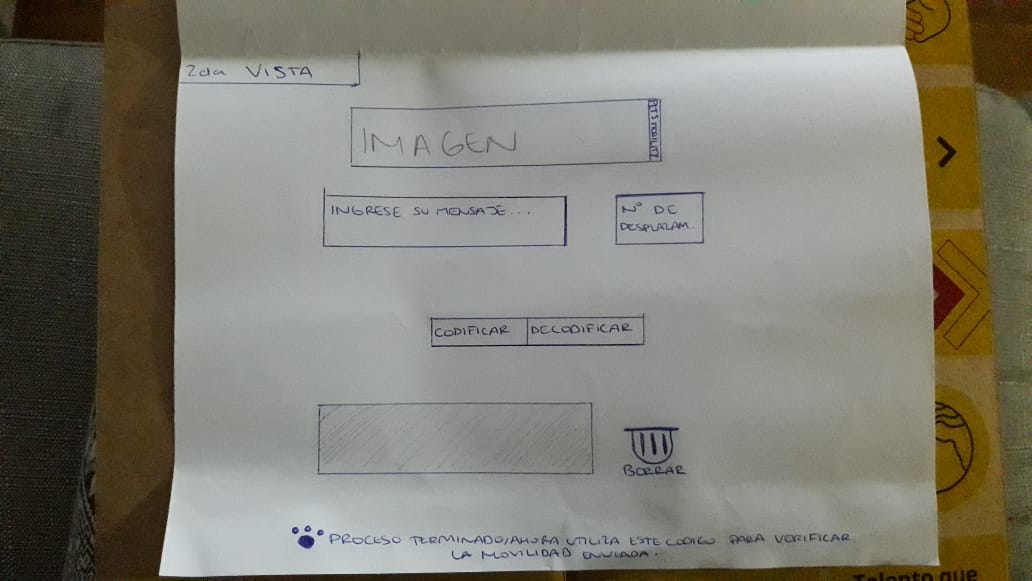 2da VISTA
IMAGEN
PET'S MOBILITY
INGRESE SU MENSAJE...
N° DE
DESPLAZAM.
CODIFICAR
DECODIFICAR
BORRAR
PROCESO TERMINADO, AHORA UTILIZA ESTE CODIGO PARA VERIFICAR
LA MOVILIDAD ENVIADA.
Talento que